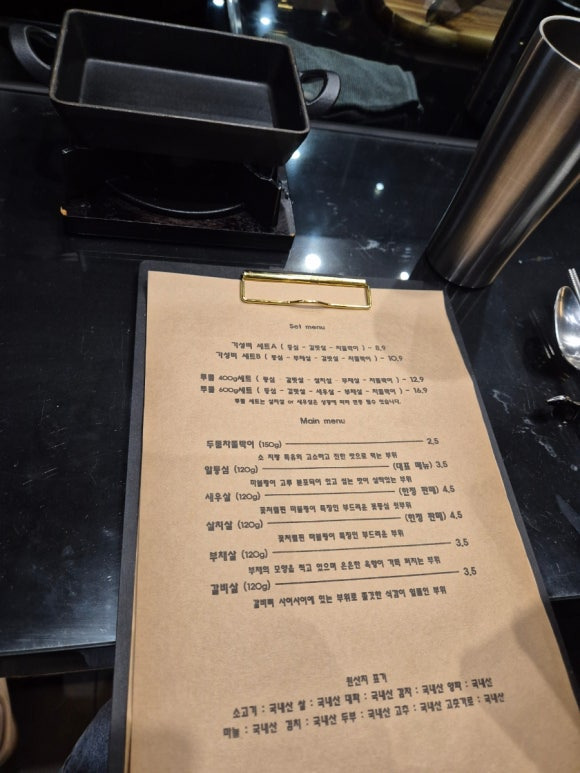 Set menu
가성비 세트A ( 등심 - 갈빗살 - 차돌박이 ) - 8,9
가성비 세트B ( 등심 - 부채살 - 갈빗살 - 차돌박이 ) - 10,9
투뿔 400g세트 ( 등심 - 갈빗살 - 살치살 - 부채살 - 차돌박이 ) - 12,9
투뿔 600g세트 ( 등심 - 갈빗살 - 새우살 - 부채살 - 차돌박이 ) - 16,9
투뿔 세트는 살치살 or 새우살은 상황에 따라 변동 될수 있습니다.
Main menu
두툼차돌박이 (150g) 2,5
소 지방 특유의 고소하고 진한 맛으로 먹는 부위
알등심 (120g) (대표 메뉴) 3,5
마블링이 고루 분포되어 있고 씹는 맛이 살아있는 부위
새우살 (120g) (한정 판매) 4,5
꽃처럼핀 마블링이 특징인 부드러운 꽃등심 윗부위
살치살 (120g) (한정 판매) 4,5
꽃처럼핀 마블링이 특징인 부드러운 부위
부채살 (120g) 3,5
부채의 모양을 띄고 있으며 은은한 육향이 가득 퍼지는 부위
갈비살 (120g) 3,5
갈비뼈 사이사이에 있는 부위로 쫄깃한 식감이 일품인 부위
원산지 표기
소고기 : 국내산 쌀 : 국내산 대파 : 국내산 감자 : 국내산 양파 : 국내산
마늘 : 국내산 김치 : 국내산 두부 : 국내산 고추 : 국내산 고춧가루 : 국내산